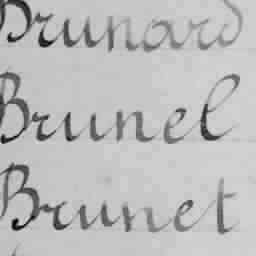 Brunard
Brunel
Brunet